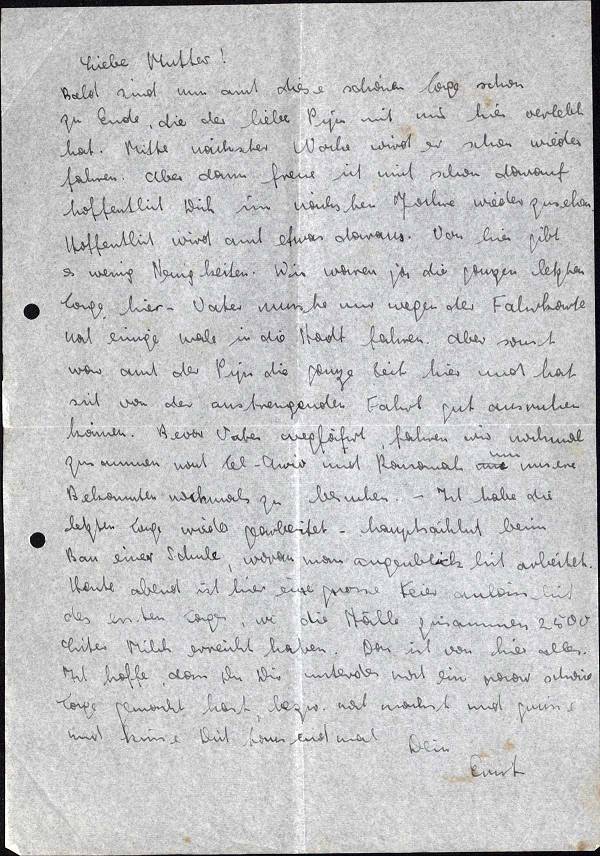 Liebe Mutter!
Bald sind nun auch diese schönen Tage schon
zu Ende, die der liebe Pijn mit mir hier verlebt
hat. Mitte nächster Woche wird er schon wieder
fahren. Aber dann freue ich mich schon darauf
hoffentlich Dich im nächsten Jahre wiederzusehen.
Hoffentlich wird auch etwas daraus. Von hier gibt
es wenig Neuigkeiten. Wir waren ja die ganzen letzten
Tage hier - Vater musste nur wegen der Fahrkarte
noch einige male in die Stadt fahren. Aber sonst
war auch der Pijn die ganze Zeit hier und hat
sich von der anstrengenden Fahrt gut ausruhen
können. Bevor Vater wegfährt, fahren wir nochmal
zusammen nach Tel-Aviv und Raanana um unsere
Bekannten nochmals zu besuchen. - Ich habe die
letzten Tage wieder gearbeitet - hauptsächlich beim
Bau einer Schule, woran man augenblicklich arbeitet.
Heute abend ist hier eine grosse Feier anlässlich
des ersten Tages, wo die Ställe zusammen 2500
Liter Milch erreicht haben. Das ist von hier alles.
Ich hoffe, dass Du Dir unterdes noch ein paar schöne
Tage gemacht hast, bezw. noch machst und grüsse
und küsse Dich tausendmal Dein
Ernst